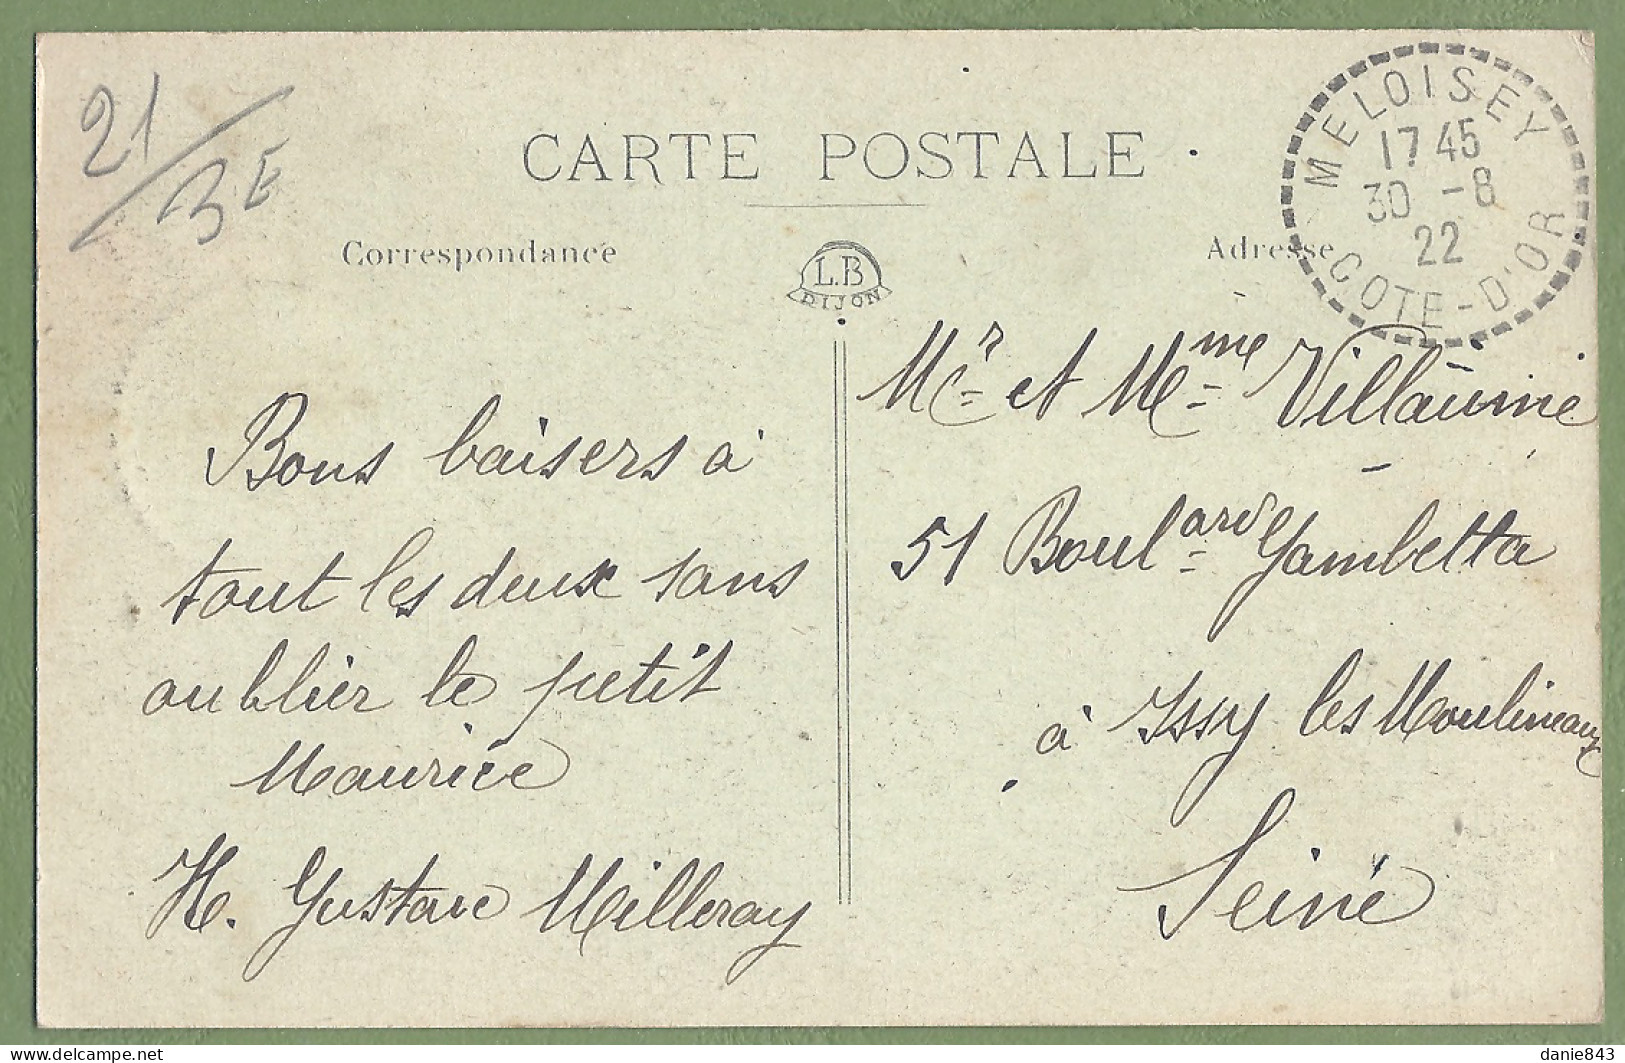 21/3E
CARTE POSTALE
MELOISEY
17 45
30 -8
22
COTE-D'OR
Correspondance
L.B
DIJON
Adresse
Mr et Mme Villaume
51 Boulard Gambetta
à Issy les Moulineaux
Seine
Bons baisers à
tout les deux sans
oublier le petit
Maurice
H. Gustave Milleray
delcampe.net
danie843